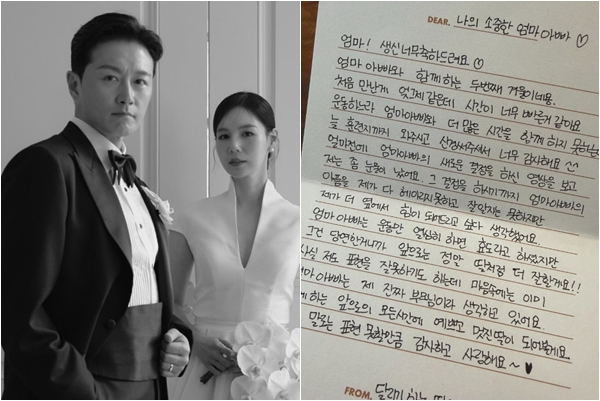 DEAR. 나의 소중한 엄마 아빠 ♡
엄마! 생신 너무 축하드려요 ♡
엄마 아빠와 함께하는 두번째 겨울이네용.
처음 만난게 엊그제 같은데 시간이 너무 빠른거 같아요
운동하느라 엄마아빠와 더 많은 시간을 함께 하지 못하는데
늘 훈련지까지 와주시고 신경써주셔서 너무 감사해요 ^^
얼마전에 엄마아빠의 새로운 결정을 하신 영상을 보고
저는 좀 눈물이 났어요. 그 결정을 하시기까지 엄마아빠의
마음을 제가 다 헤아리지 못하고 잘 알지는 못하지만
제가 더 옆에서 힘이 되어드리고 싶다 생각했어요.
엄마 아빠는 운동만 열심히 하면 효도라고 하셨지만
그건 당연한거니까 앞으로는 정말 딸처럼 더 잘할게요!!
사실 저도 표현을 잘 못하기도 하는데 마음속에는 이미
엄마 아빠는 제 진짜 부모님이라 생각하고 있어요
하는 앞으로의 모든시간에 예쁘고 멋진딸이 되어볼게요.
말로는 표현 못할만큼 감사하고 사랑해요~ ♥
FROM. 달리기 하는